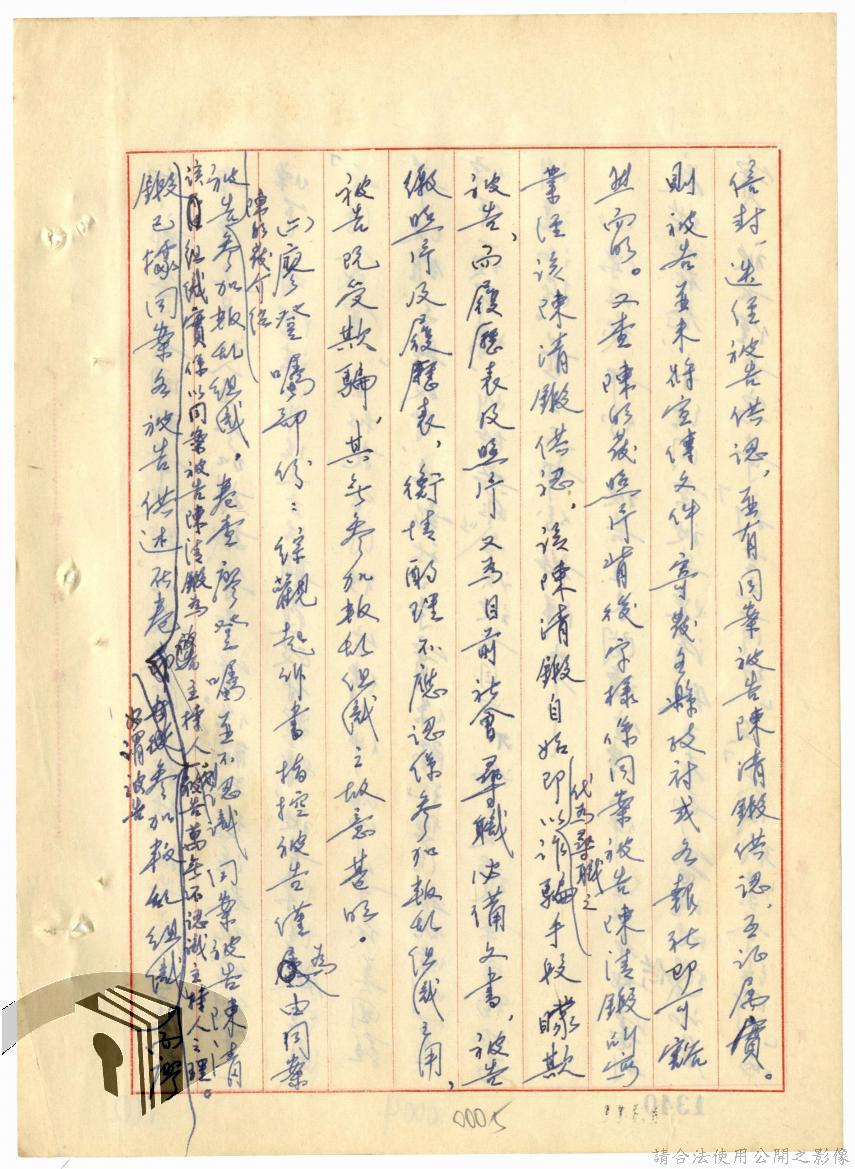 信封一迭經被告供認，並有同案被告陳清鍛供認，互証屬實。
則被告並未將宣傳文件寄發至縣政府或各報社即可豁
然而明。又查陳明發照片背後字樣係同案被告陳清鍛所寫
業經該陳清鍛供認，該陳清鍛自始即以代為尋職之詐騙手段矇欺
被告，而履歷表及照片又為目前社會尋職必備文書，被告
繳照片及履歷表，衡情酌理不應認係參加叛乱組織之用，
被告既受欺騙，其無參加叛乱組織之故意甚明。
廖登囑部份：綜觀起訴書指控被告僅為由同案
陳明發介紹
被告參加叛乱組織。卷查廖登囑並不認識同案被告陳清
該組織實係以同案被告陳清鍛為主持人，被告萬無不認識主持人之理。
鍛已據同案各被告供述在卷 參加叛乱組織
如謂被告
0005
1340
請合法使用公開之影像